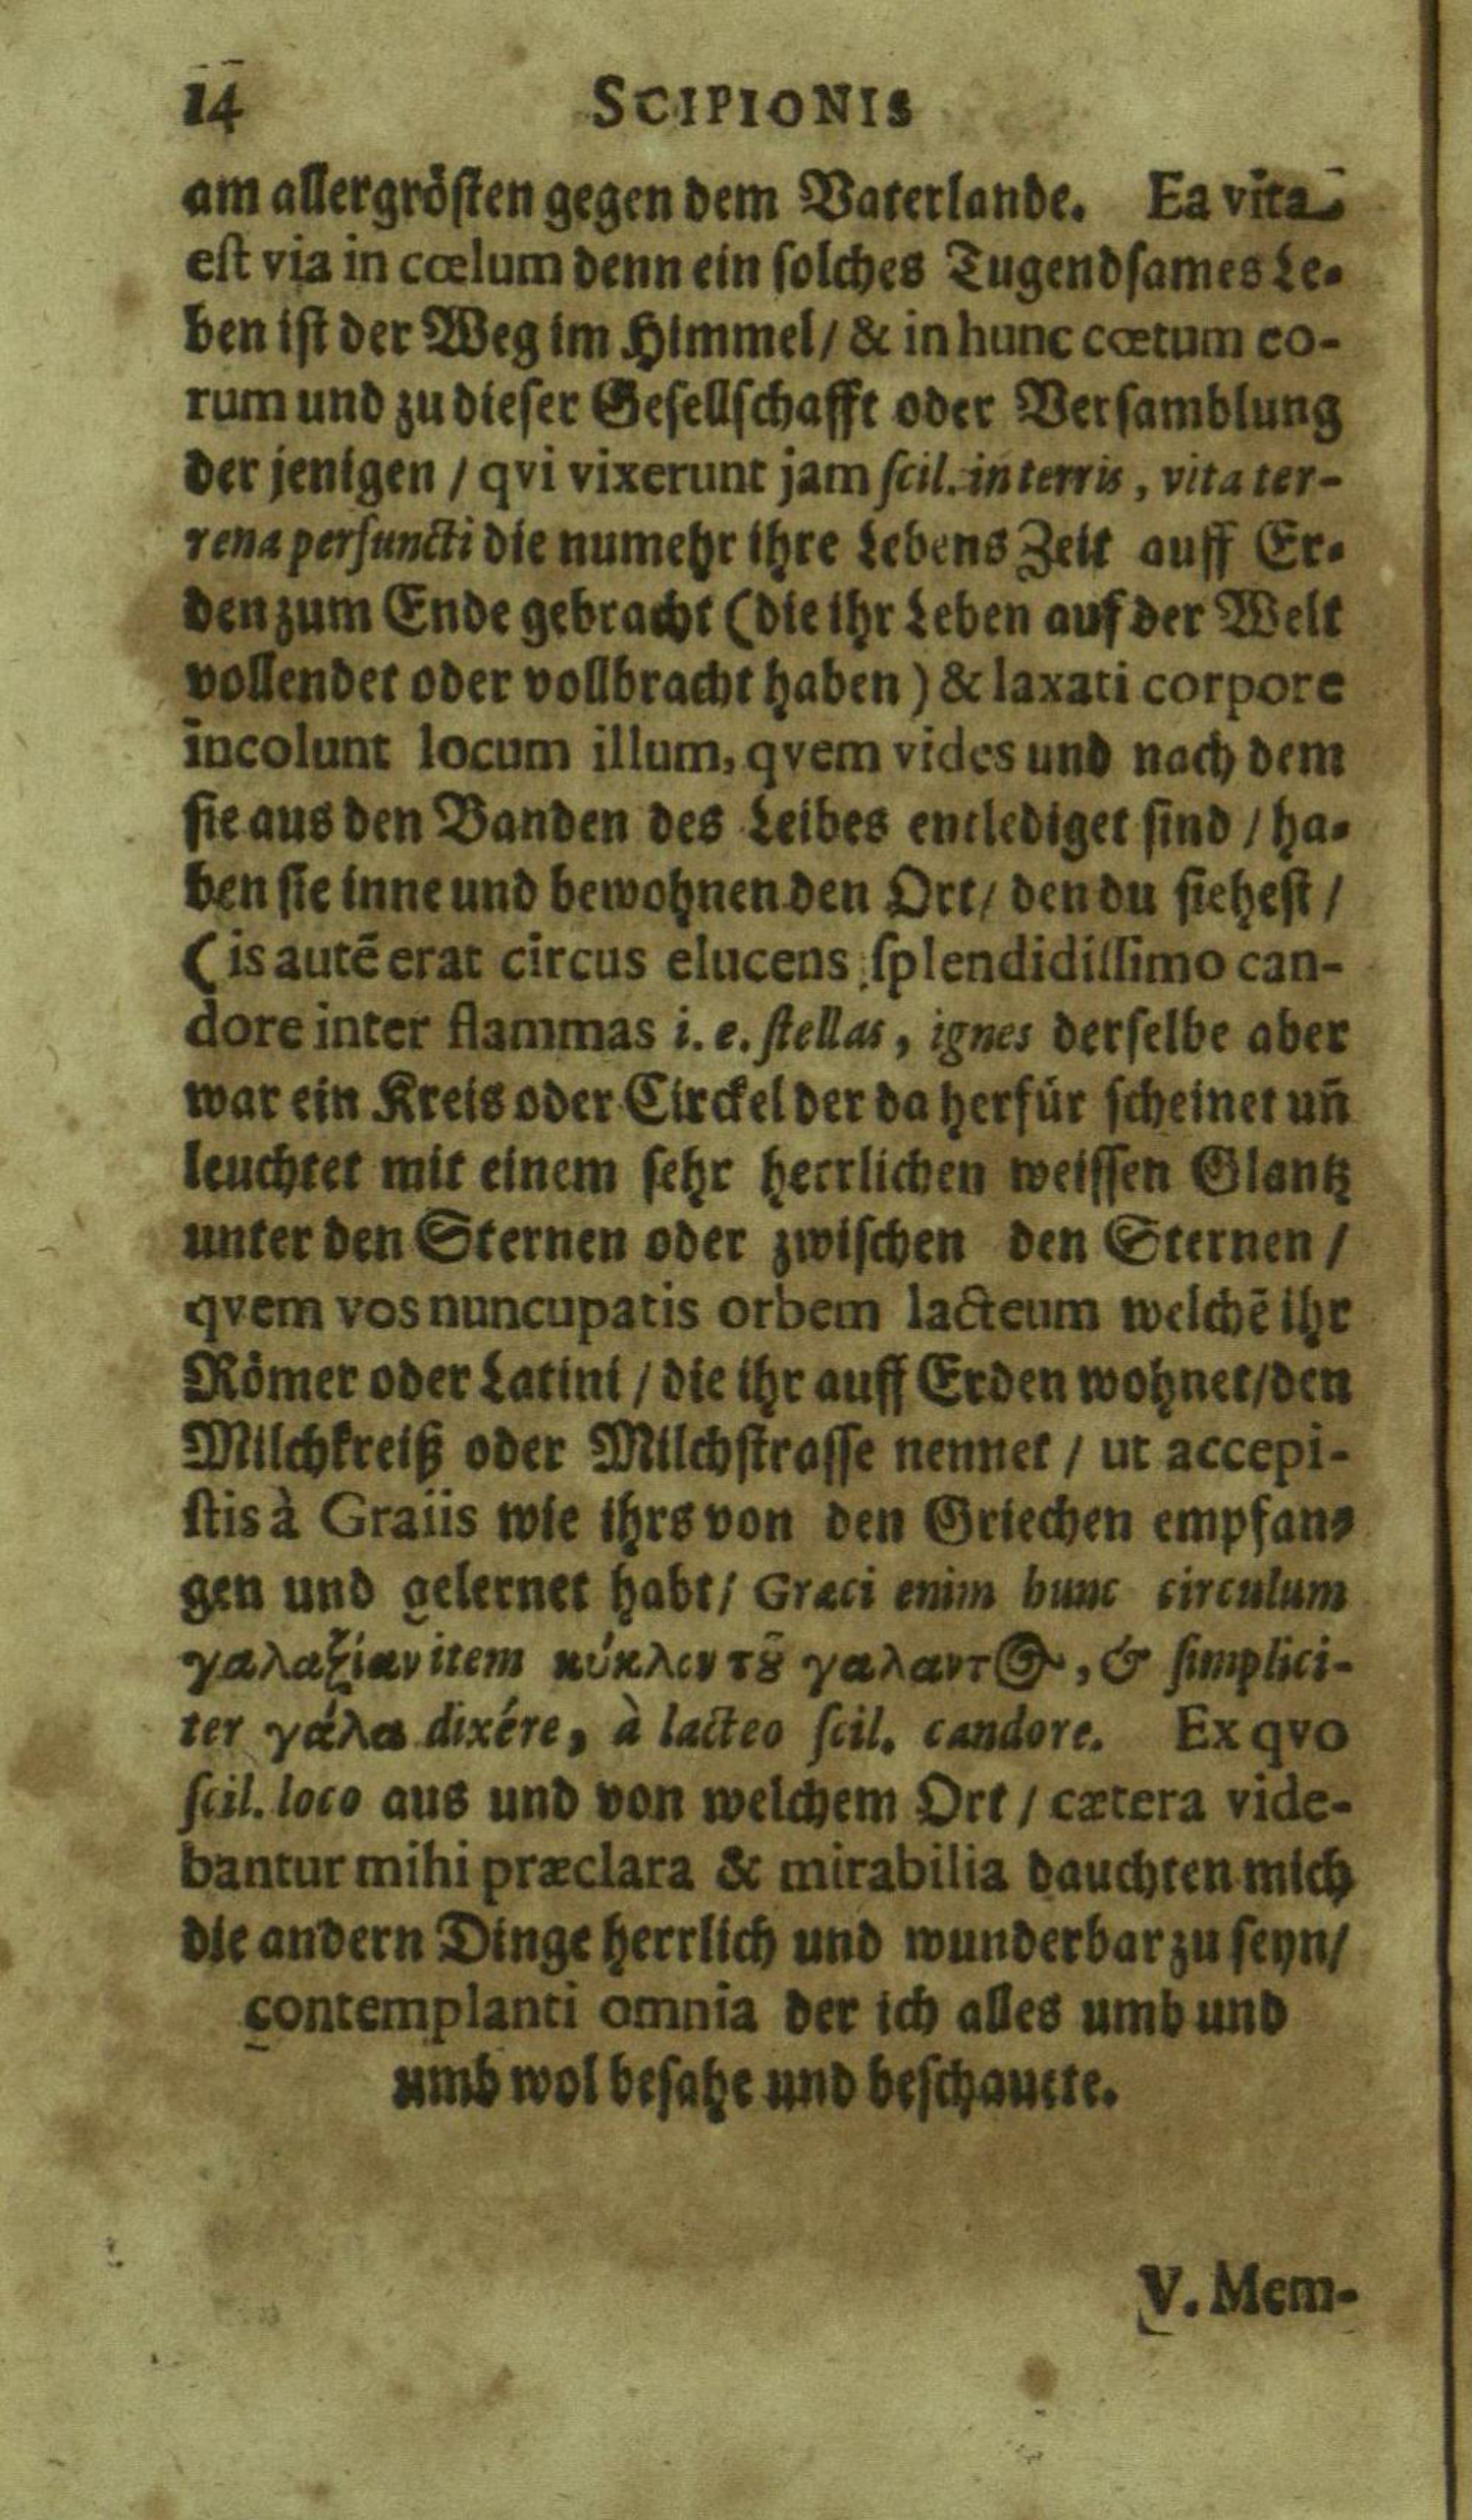 14 SCIPIONIS
am allergrösten gegen dem Vaterlande. Ea vita
est via in cœlum denn ein solches Tugendsames Le-
ben ist der Weg im Himmel / & in hunc cœtum eo-
rum und zu dieser Gesellschafft oder Versamblung
der jenigen / qvi vixerunt jam scil. in terris, vita ter-
rena perfuncti die numehr ihre Lebens Zeit auff Er-
den zum Ende gebracht (die ihr Leben auf der Welt
vollendet oder vollbracht haben) & laxati corpore
incolunt locum illum, qvem vides und nach dem
sie aus den Banden des Leibes entlediget sind / ha-
ben sie inne und bewohnen den Ort / den du siehest /
(is autē erat circus elucens splendidissimo can-
dore inter flammas i. e. stellas, ignes derselbe aber
war ein Kreis oder Circkel der da herfür scheinet uñ
leuchtet mit einem sehr herrlichen weissen Glantz
unter den Sternen oder zwischen den Sternen /
qvem vos nuncupatis orbem lacteum welchē ihr
Römer oder Latini / die ihr auff Erden wohnet / den
Milchkreiß oder Milchstrasse nennet / ut accepi-
stis à Graiis wie ihrs von den Griechen empfan-
gen und gelernet habt / Græci enim hunc circulum
γαλαξίαν item κύκλον τȣ͂ γαλαντ@, & simplici-
ter γάλα dixére, à lacteo scil. candore. Ex qvo
scil. loco aus und von welchem Ort / cætera vide-
bantur mihi præclara & mirabilia dauchten mich
die andern Dinge herrlich und wunderbar zu seyn /
contemplanti omnia der ich alles umb und
umb wol besahe und beschauete.
V. Mem-